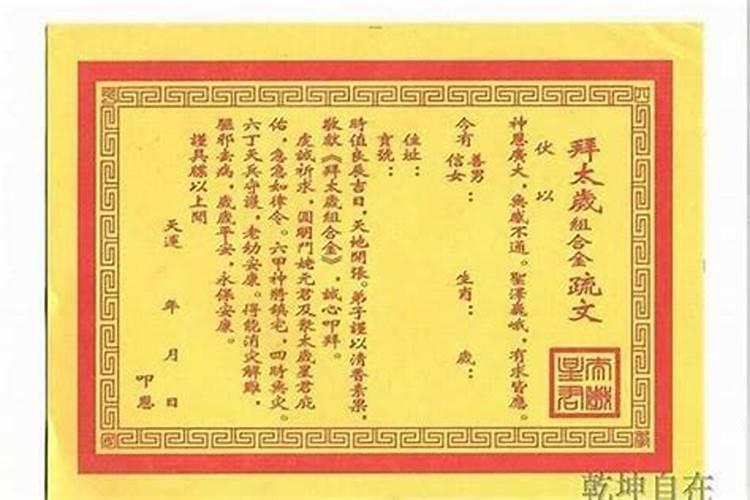 拜太歲組合金疏文
太歲星君
伏以
神恩廣大，無感不通。聖澤巍峨，有求皆應。
今有 善男信女： 生肖： 歲：
住址：
寶號：
時值良辰吉日，天地開張。弟子謹以清香素果，
敬獻《拜太歲組合金》，誠心叩拜。
虔誠祈求，圓明斗姥元君及眾太歲星君庇
佑，急急如律令。六甲神將鎮宅，四時無災。
六丁天兵守護，老幼安康。得能消災解難，
驅邪去病，歲歲平安，永保安康。
謹具牒以上聞
天運 年 月 日 叩恩
乾坤自在